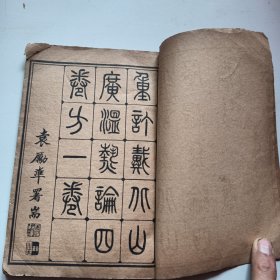 重訂戴北山
廣溫熱論四
卷方一卷
袁勵準署耑